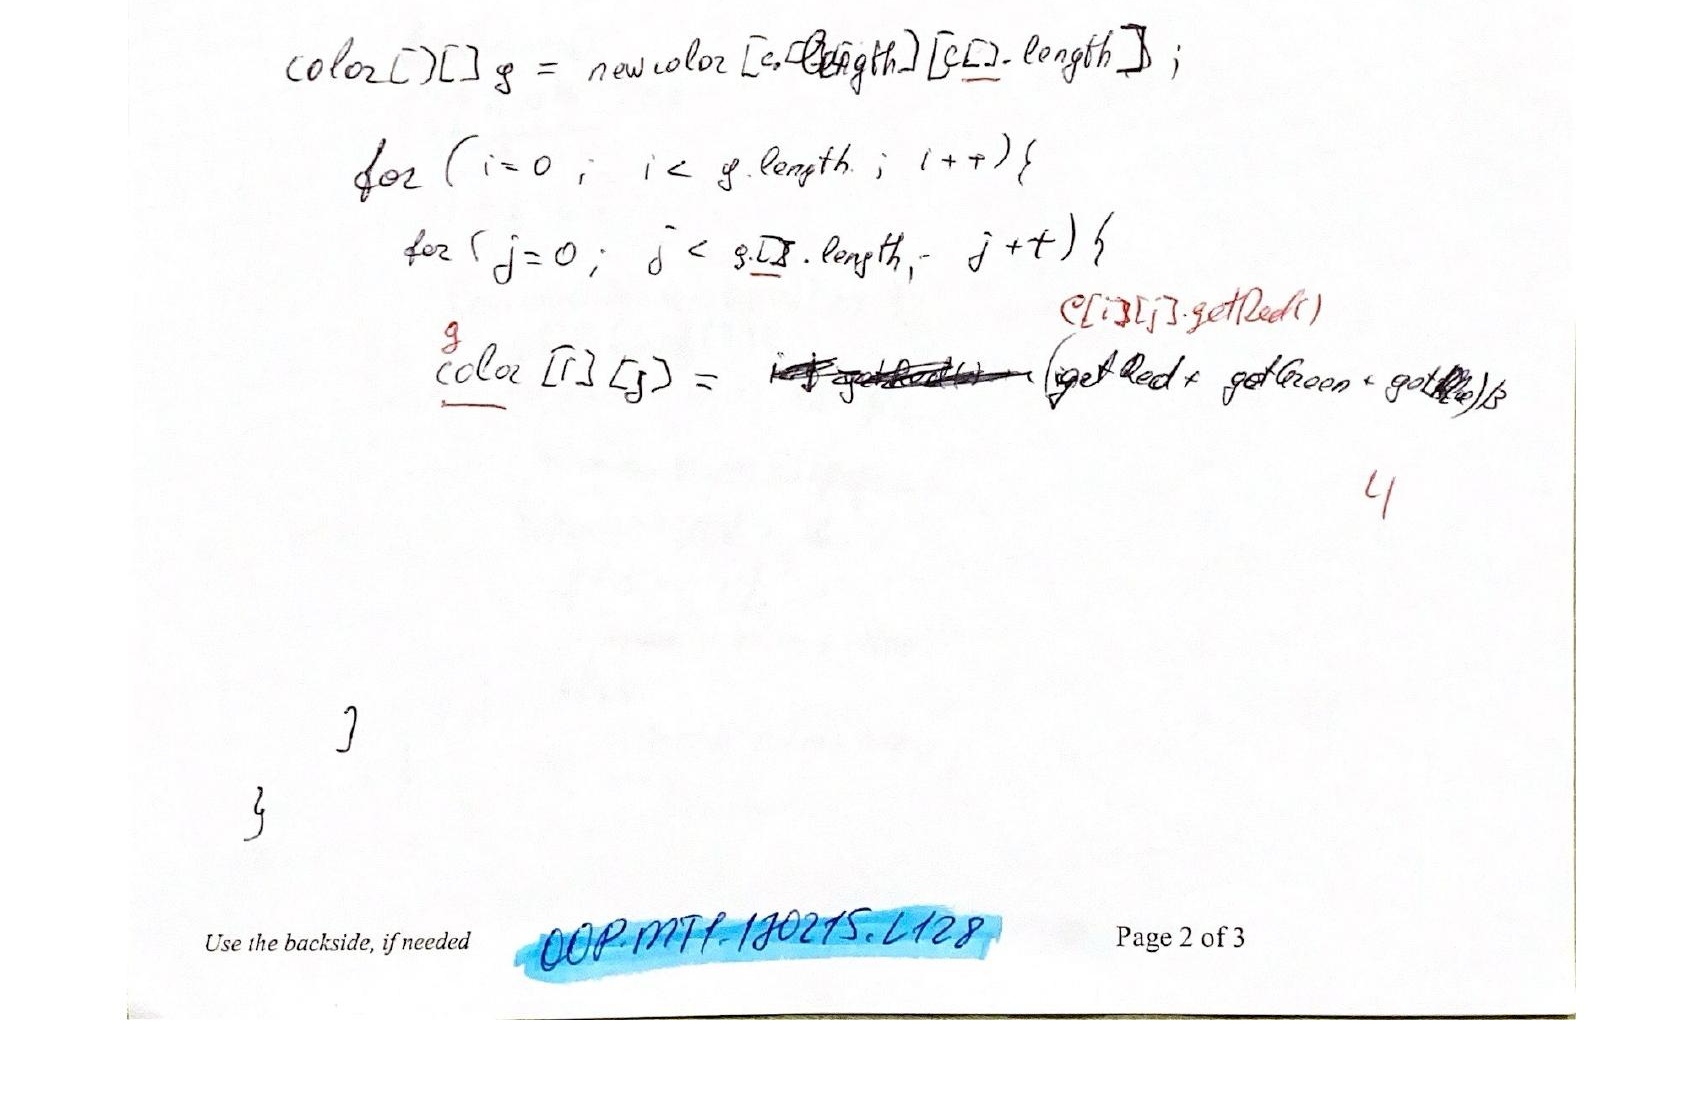 color[][] g = new color [c.length][c[].length];
for (i=0; i< g.length; i++){
for (j=0; j< g[].length; j++){
c[i][j].getRed()
g
color [i][j] = (getRed + getGreen + getBlue)/3
4
}
}
Use the backside, if needed OOP.MT1.170215.L128 Page 2 of 3